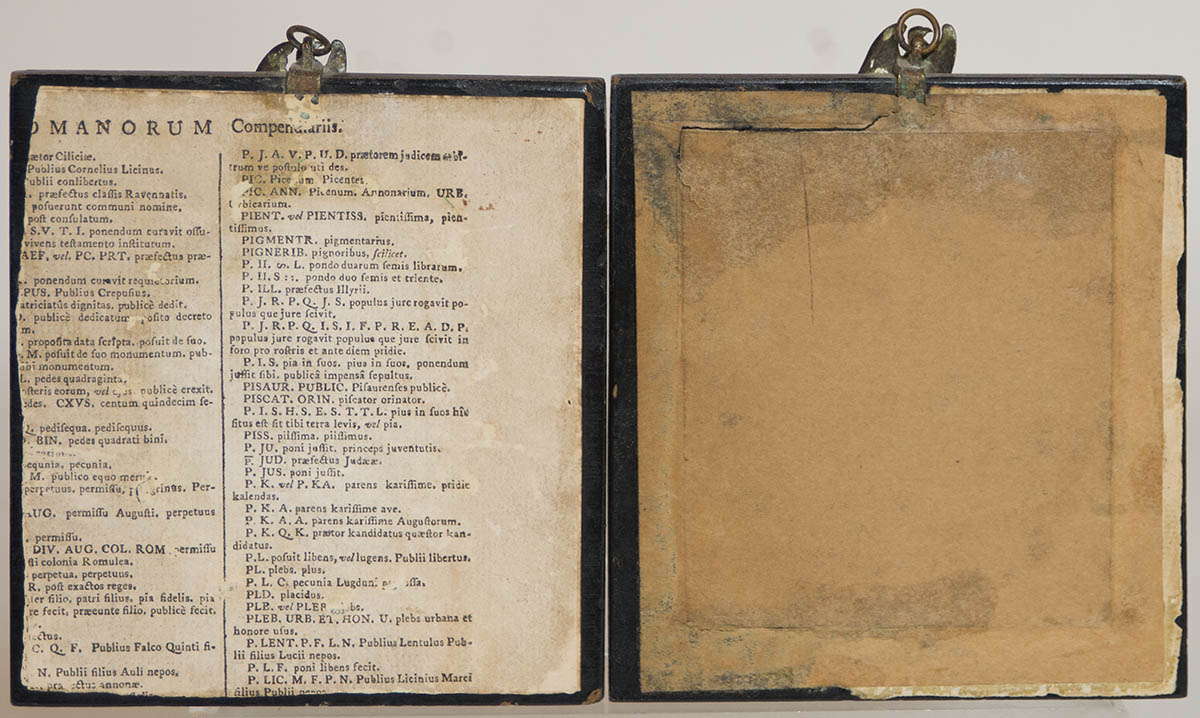 OMANORUM Compendiariis.
ætor Ciliciæ.
Publius Cornelius Licinus.
ublii conlibertus.
præfectus classis Ravennatis.
posuerunt communi nomine.
post consulatum.
S.V. T. I. ponendum curavit ossu-
vivens testamento institutum.
AEF. vel. PC. PRT. præfectus præ-
ponendum curavit requietorium.
PUS. Publius Crepusius.
atriciatûs dignitas. publicè dedit.
publicè dedicatum posito decreto
m.
proposita data scripta. posuit de suo.
M. posuit de suo monumentum. pub-
ibi monumentum.
L. pedes quadraginta.
steris eorum, vel ejus. publicè erexit.
edes. CXVS. centum quindecim se-
Q. pedisequa. pedisequus.
BIN. pedes quadrati bini.
equnia. pecunia.
M. publico equo
perpetuus. permissu, Per-
AUG. permissu Augusti. perpetuus
permissu.
DIV. AUG. COL. ROM. permissu
sti colonia Romulea.
perpetua. perpetuus.
R. post exactos reges.
ter filio. patri filius. pia fidelis. pia
re fecit. præeunte filio. publicè fecit.
ectus.
C. Q. F. Publius Falco Quinti fi-
N. Publii filius Auli nepos.
annonæ.
P. J. A. V. P. U. D. prætorem judicem arbi-
trum ve postulo uti des.
PIC. Picenum Picentes.
PIC. ANN. Picenum. Annonarium. URB.
Urbicarium.
PIENT. vel PIENTISS. pientissima, pien-
tissimus.
PIGMENTR. pigmentarius.
PIGNERIB. pignoribus, scilicet.
P. II. L. pondo duarum semis librarum.
P. II. S : : . pondo duo semis et triente.
P. ILL. præfectus Illyrii.
P. J. R. P. Q. J. S. populus jure rogavit po-
pulus que jure scivit.
P. J. R. P. Q. I. S. I. F. P. R. E. A. D. P.
populus jure rogavit populus que jure scivit in
foro pro rostris et ante diem pridie.
P. I. S. pia in suos. pius in suos. ponendum
jussit sibi. publicâ impensâ sepultus.
PISAUR. PUBLIC. Pisaurenses publicè.
PISCAT. ORIN. piscator orinator.
P. I. S. H. S. E. S. T. T. L. pius in suos hîc
situs est sit tibi terra levis, vel pia.
PISS. piissima. piissimus.
P. JU. poni jussit. princeps juventutis.
P. JUD. præfectus Judææ.
P. JUS. poni jussit.
P. K. vel P. KA. parens karissime. pridie
kalendas.
P. K. A. parens karissime ave.
P. K. A. A. parens karissime Augustorum.
P. K. Q. K. prætor kandidatus quæstor kan-
didatus.
P.L. posuit libens, vel lugens. Publii libertus.
PL. plebs. plus.
P. L. C. pecunia Lugduni
PLD. placidus.
PLB. vel PLEB
PLEB. URB. ET. HON. U. plebs urbana et
honore usus.
P. LENT. P. F. L. N. Publius Lentulus Pub-
lii filius Lucii nepos.
P. L. F. poni libens fecit.
P. LIC. M. F. P. N. Publius Licinius Marci
filius Publii nepos